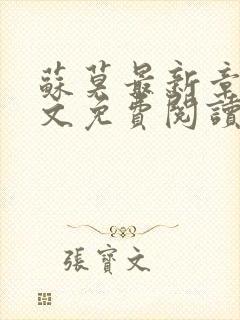 蘇莫最新章
文免費閱讀
張寶文